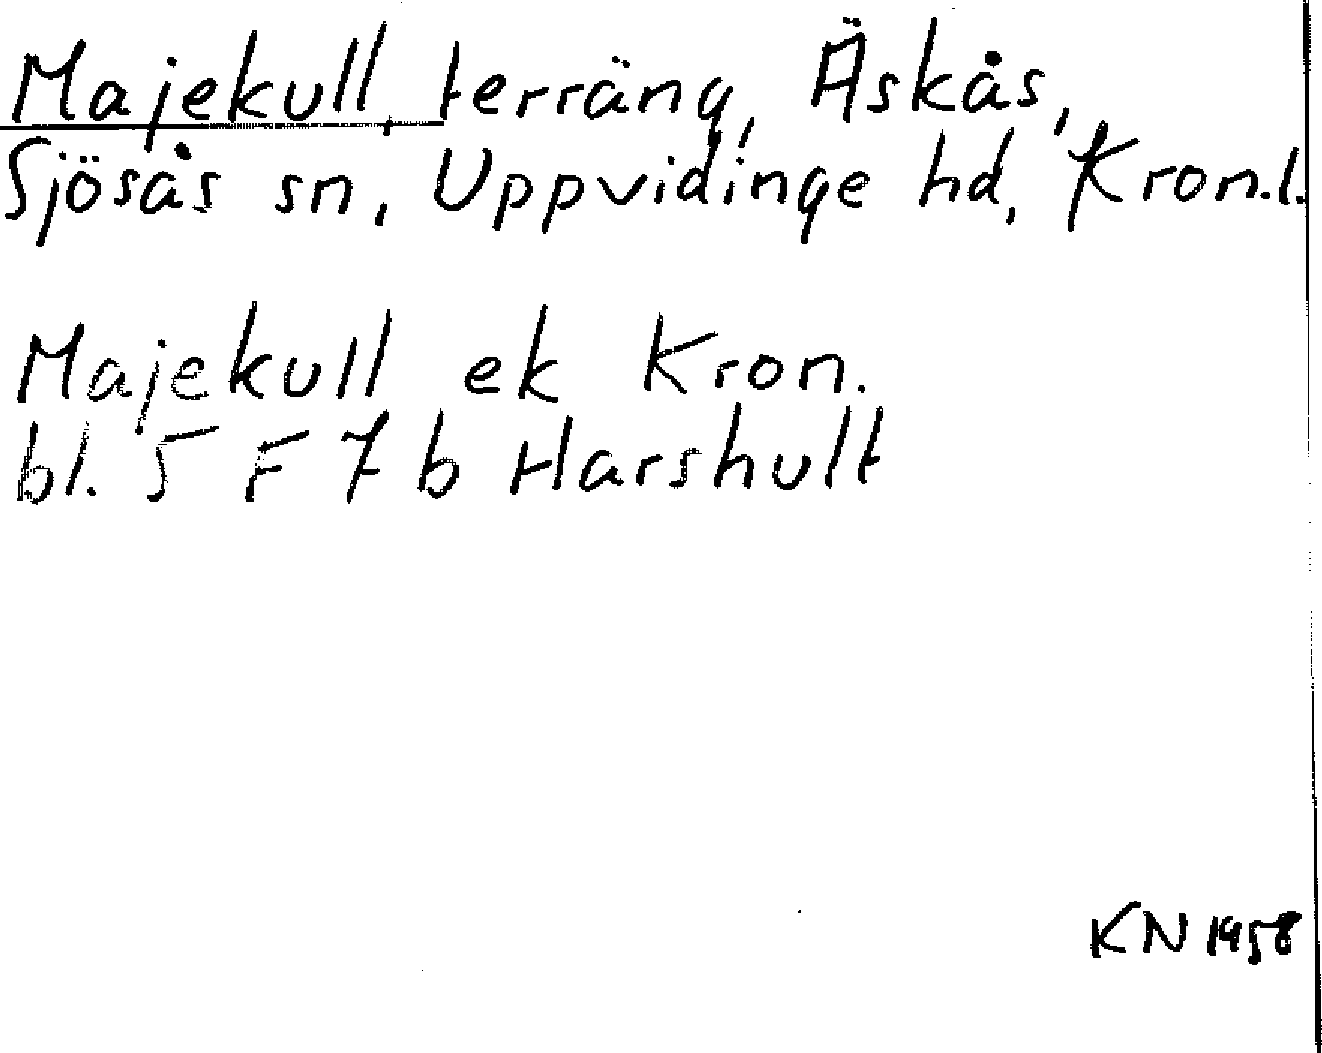 Majekull, terräng, Äskås,
Sjösås sn, Uppvidinge hd, Kron.l.
Majekull ek Kron.
bl. 5 F 7 b Harshult
KN 1958